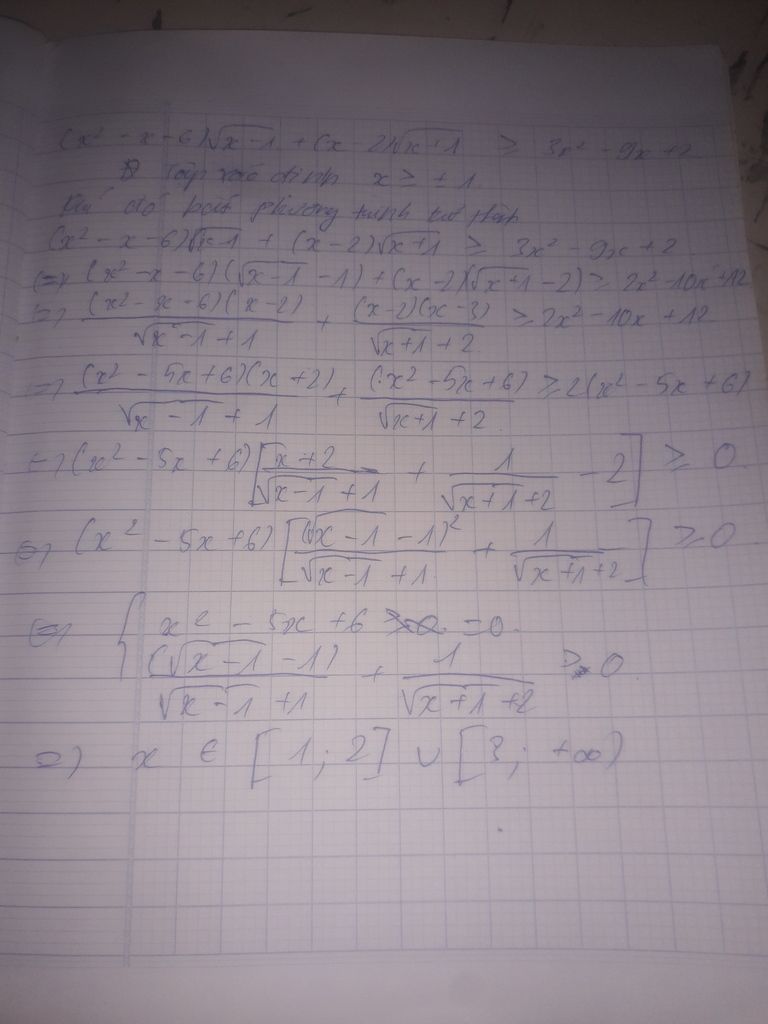 (x² - x - 6)√x-1 + (x - 2)√x+1 ≥ 3x² - 9x + 2
Tập xác định x ≥ ± 1
Khi đó bất phương trình
(x² - x - 6)√x-1 + (x - 2)√x+1 ≥ 3x² - 9x + 2
(=) (x² - x - 6)(√x-1 - 1) + (x - 2)(√x+1 - 2) ≥ 2x² - 10x + 12
(=) (x² - x - 6)(x - 2) / √x-1 + 1 + (x-2)(x-3) / √x+1 + 2 ≥ 2x² - 10x + 12
(=) (x² - 5x + 6)(x + 2) / √x - 1 + 1 + (x² - 5x + 6) / √x+1 + 2 ≥ 2(x² - 5x + 6)
(=) (x² - 5x + 6) [x + 2 / √x-1 + 1 + 1 / √x+1 + 2 - 2] ≥ 0
(=) (x² - 5x + 6) [(√x - 1 - 1)² / √x-1 + 1 + 1 / √x+1 + 2] ≥ 0
(=) { x² - 5x + 6 = 0
(√x-1 - 1) / √x-1 + 1 + 1 / √x+1 + 2 ≥ 0
=) x ∈ [1; 2] ∪ [3; +∞)